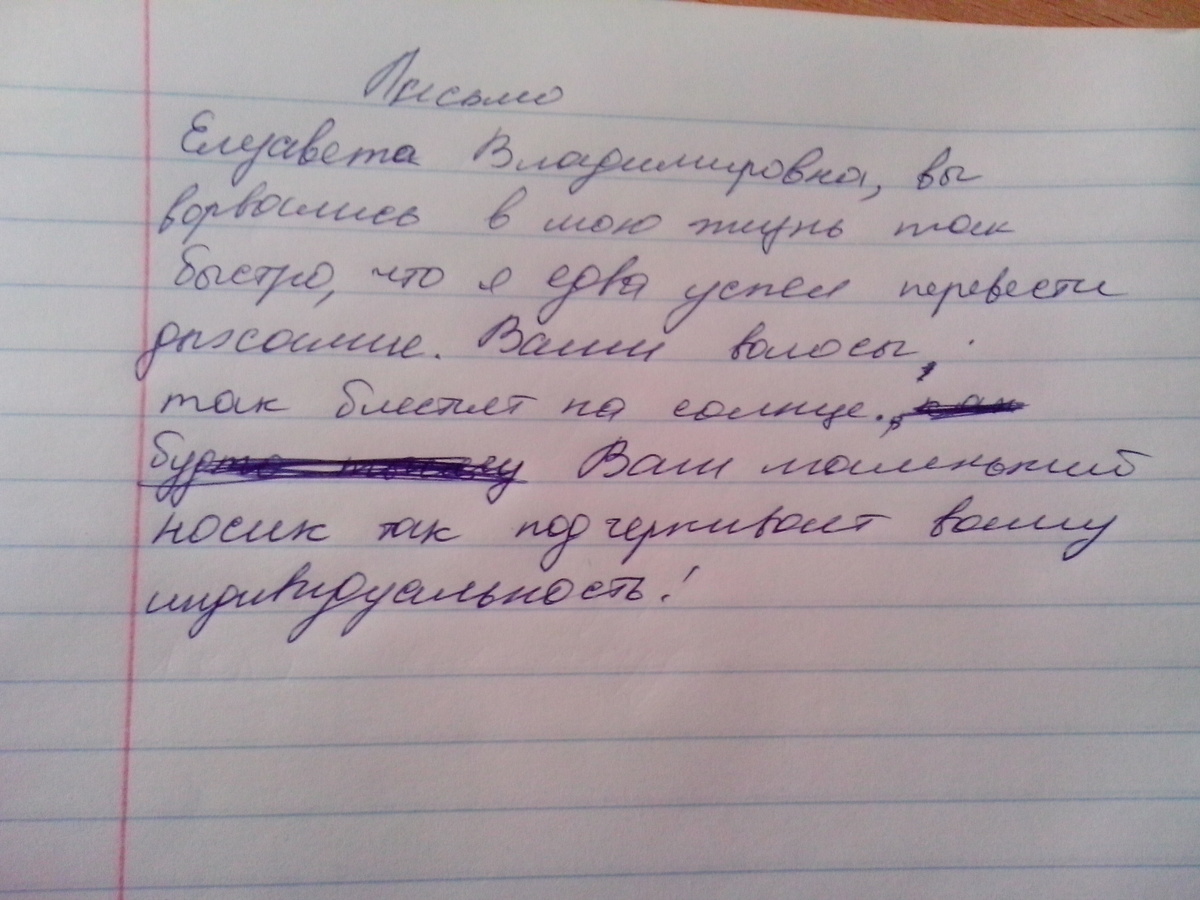 Письмо
Елизавета Владимировна, вы
ворвались в мою жизнь так
быстро, что я едва успел перевести
дыхание. Ваши волосы,
так блестят на солнце. как
будто Ваш маленький
носик так подчеркивает вашу
индивидуальность!